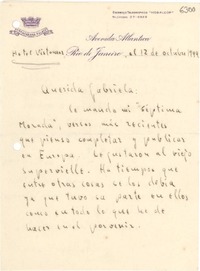 6300
Avenida Atlantica
Hotel Victoria Rio de Janeiro, al 12 de octubre 1944
Querida Gabriela:
le mando mi "Séptima
Morada", versos más recientes
que pienso completar y publicar
en Europa. Le gustaron al viejo
Supervielle. Ha tiempos que
entre otras cosas se los debía
ya que tuvo su parte en ellos
como en todo lo que he de
hacer en el porvenir.